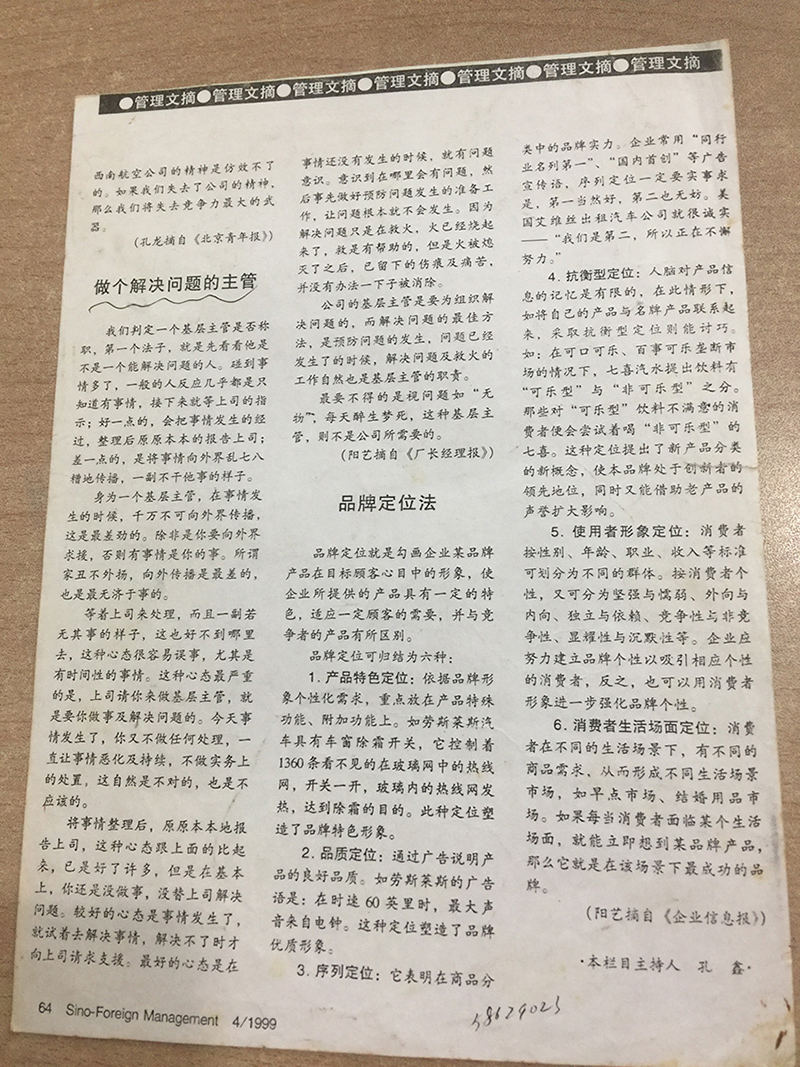 ●管理文摘●管理文摘●管理文摘●管理文摘●管理文摘●管理文摘●管理文摘
西南航空公司的精神是仿效不了
的。如果我们失去了公司的精神，
那么我们将失去竞争力最大的武
器。
(孔龙摘自《北京青年报》)
做个解决问题的主管
我们判定一个基层主管是否称
职，第一个法子，就是先看看他是
不是一个能解决问题的人。碰到事
情多了，一般的人反应几乎都是只
知道有事情，接下来就等上司的指
示；好一点的，会把事情发生的经
过，整理后原原本本的报告上司；
差一点的，是将事情向外界乱七八
糟地传播，一副不干他事的样子。
身为一个基层主管，在事情发
生的时候，千万不可向外界传播，
这是最差劲的。除非是你要向外界
求援，否则有事情是你的事。所谓
家丑不外扬，向外传播是最差的，
也是最无济于事的。
等着上司来处理，而且一副若
无其事的样子，这也好不到哪里
去，这种心态很容易误事，尤其是
有时间性的事情。这种心态最严重
的是，上司请你来做基层主管，就
是要你做事及解决问题的。今天事
情发生了，你又不做任何处理，一
直让事情恶化及持续，不做实务上
的处置，这自然是不对的，也是不
应该的。
将事情整理后，原原本本地报
告上司，这种心态跟上面的比起
来，已是好了许多，但是在基本
上，你还是没做事，没替上司解决
问题。较好的心态是事情发生了，
就试着去解决事情，解决不了时才
向上司请求支援。最好的心态是在
事情还没有发生的时候，就有问题
意识。意识到在哪里会有问题，然
后事先做好预防问题发生的准备工
作，让问题根本就不会发生。因为
解决问题只是在救火，火已经烧起
来了，救是有帮助的，但是火被熄
灭了之后，已留下的伤痕及痛苦，
并没有办法一下子被消除。
公司的基层主管是要为组织解
决问题的，而解决问题的最佳方
法，是预防问题的发生，问题已经
发生了的时候，解决问题及救火的
工作自然也是基层主管的职责。
最要不得的是视问题如“无
物”，每天醉生梦死，这种基层主
管，则不是公司所需要的。
(阳艺摘自《厂长经理报》)
品牌定位法
品牌定位就是勾画企业某品牌
产品在目标顾客心目中的形象，使
企业所提供的产品具有一定的特
色，适应一定顾客的需要，并与竞
争者的产品有所区别。
品牌定位可归结为六种：
1. 产品特色定位：依据品牌形
象个性化需求，重点放在产品特殊
功能、附加功能上。如劳斯莱斯汽
车具有车窗除霜开关，它控制着
1360条看不见的在玻璃网中的热线
网，开关一开，玻璃内的热线网发
热，达到除霜的目的。此种定位塑
造了品牌特色形象。
2. 品质定位：通过广告说明产
品的良好品质。如劳斯莱斯的广告
语是：在时速60英里时，最大声
音来自电钟。这种定位塑造了品牌
优质形象。
3. 序列定位：它表明在商品分
类中的品牌实力。企业常用“同行
业名列第一”、“国内首创”等广告
宣传语，序列定位一定要实事求
是，第一当然好，第二也无妨。美
国艾维丝出租汽车公司就很诚实
——“我们是第二，所以正在不懈
努力。”
4. 抗衡型定位：人脑对产品信
息的记忆是有限的，在此情形下，
如将自己的产品与名牌产品联系起
来，采取抗衡型定位则能讨巧。
如：在可口可乐、百事可乐垄断市
场的情况下，七喜汽水提出饮料有
“可乐型”与“非可乐型”之分。
那些对“可乐型”饮料不满意的消
费者便会尝试着喝“非可乐型”的
七喜。这种定位提出了新产品分类
的新概念，使本品牌处于创新者的
领先地位，同时又能借助老产品的
声誉扩大影响。
5. 使用者形象定位：消费者
按性别、年龄、职业、收入等标准
可划分为不同的群体。按消费者个
性，又可分为坚强与懦弱、外向与
内向、独立与依赖、竞争性与非竞
争性、显耀性与沉默性等。企业应
努力建立品牌个性以吸引相应个性
的消费者，反之，也可以用消费者
形象进一步强化品牌个性。
6. 消费者生活场面定位：消费
者在不同的生活场景下，有不同的
商品需求，从而形成不同生活场景
市场，如早点市场、结婚用品市
场。如果每当消费者面临某个生活
场面，就能立即想到某品牌产品，
那么它就是在该场景下最成功的品
牌。
(阳艺摘自《企业信息报》)
·本栏目主持人 孔 鑫·
64 Sino-Foreign Management 4/1999